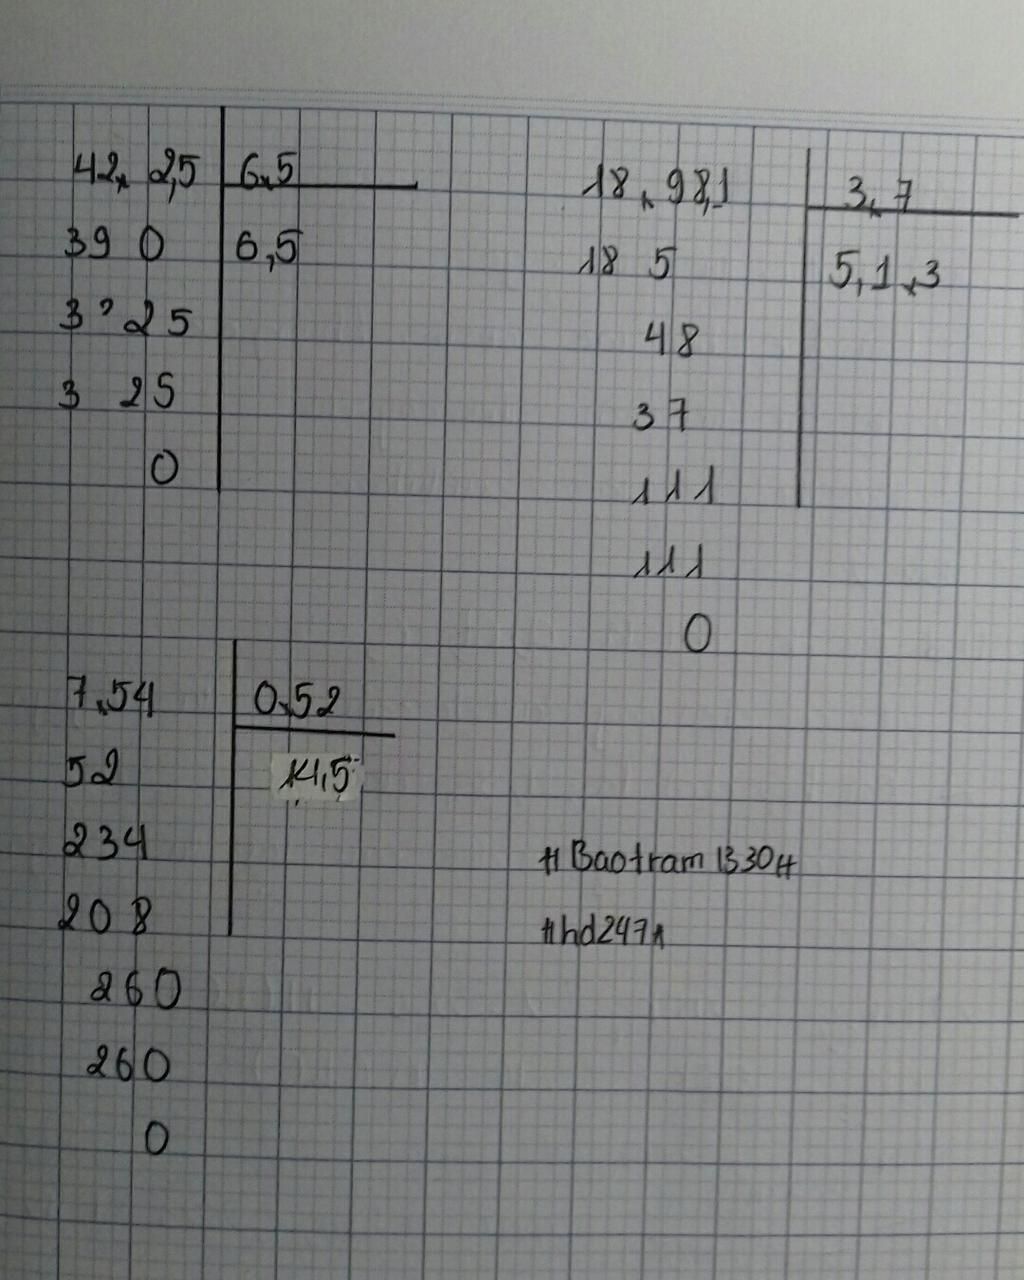 42, 2,5 6,5
39 0 6,5
3 25
3 25
0
18,98,1 3,7
18 5 5,1,3
48
37
111
111
0
7,54 0,52
52 14,5
234
208
260
260
0
#Baotram1330#
#hd247